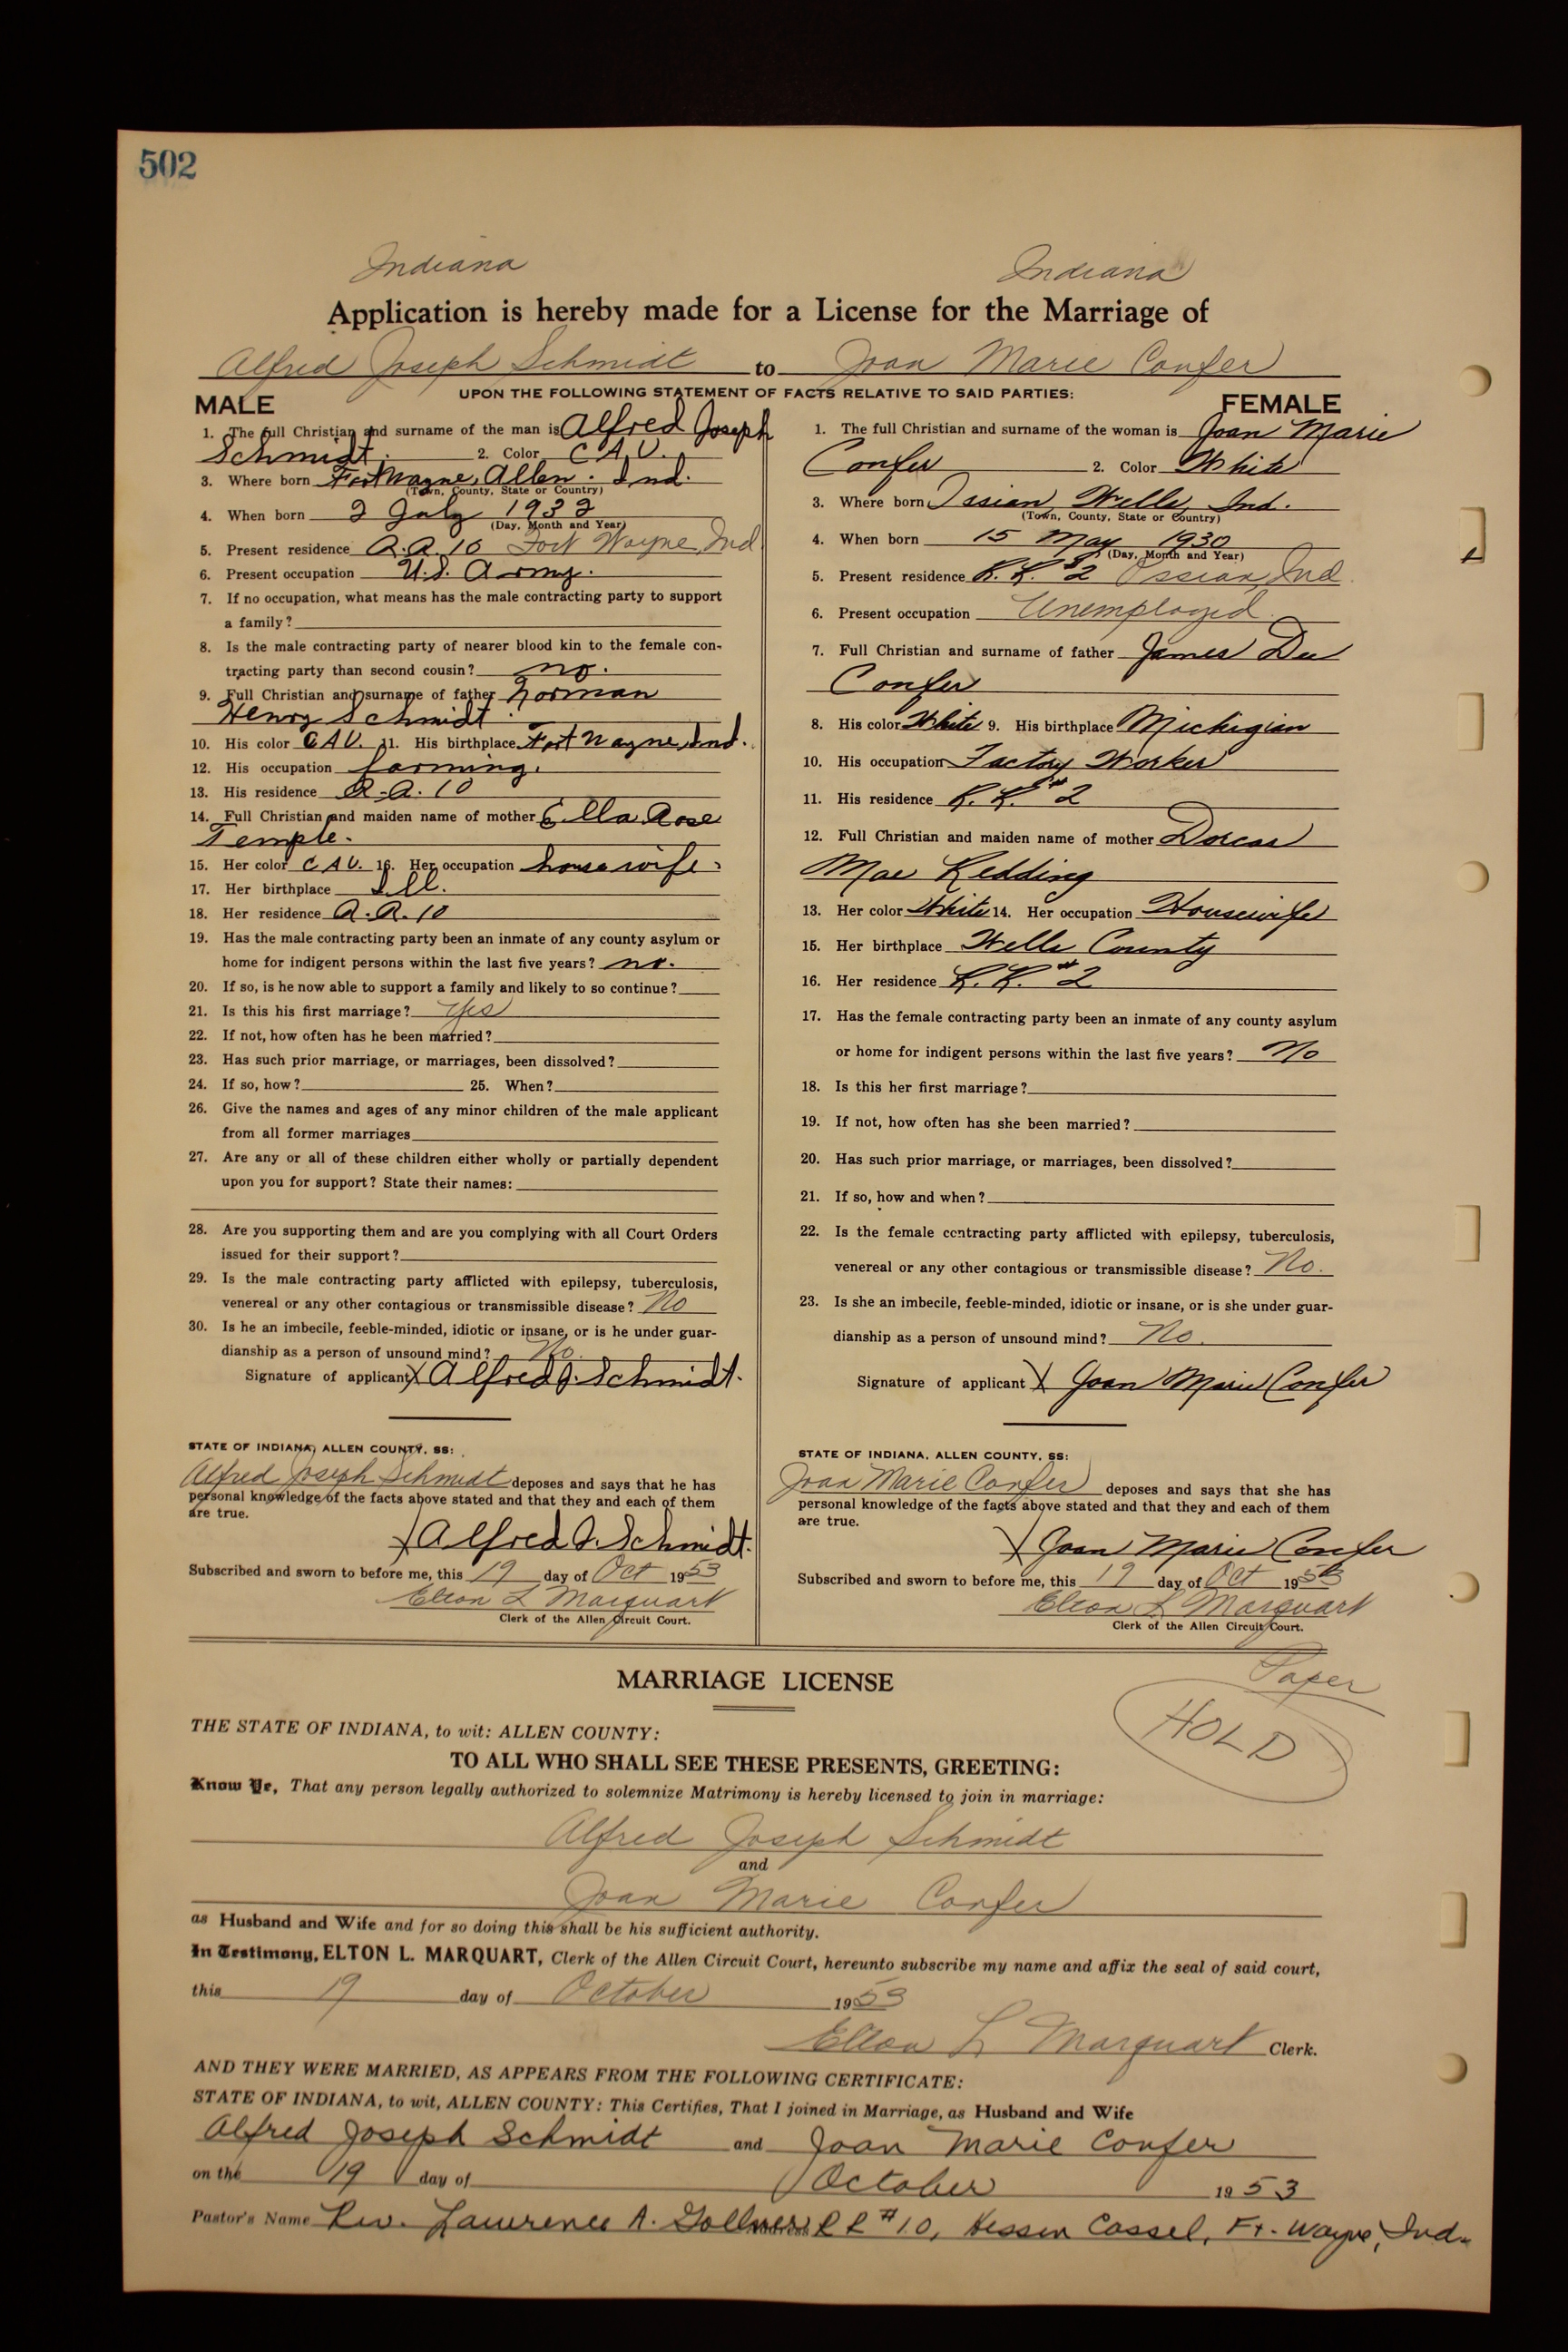 502
Indiana Indiana
Application is hereby made for a License for the Marriage of
Alfred Joseph Schmidt to Joan Marie Confer
UPON THE FOLLOWING STATEMENT OF FACTS RELATIVE TO SAID PARTIES:
MALE
1. The full Christian and surname of the man is Alfred Joseph
Schmidt. 2. Color C A U.
3. Where born Fort Wayne, Allen. Ind.
(Town, County, State or Country)
4. When born 2 July 1932
(Day, Month and Year)
5. Present residence R.R. 10 Fort Wayne, Ind
6. Present occupation U.S. Army.
7. If no occupation, what means has the male contracting party to support
a family?
8. Is the male contracting party of nearer blood kin to the female con-
tracting party than second cousin? no.
9. Full Christian and surname of father Norman
Henry Schmidt.
10. His color C A U. 11. His birthplace Fort Wayne, Ind.
12. His occupation farming.
13. His residence R.R. 10
14. Full Christian and maiden name of mother Ella Rose
Temple.
15. Her color C A U. 16. Her occupation housewife.
17. Her birthplace Ill.
18. Her residence R.R. 10
19. Has the male contracting party been an inmate of any county asylum or
home for indigent persons within the last five years? no.
20. If so, is he now able to support a family and likely to so continue?
21. Is this his first marriage? Yes
22. If not, how often has he been married?
23. Has such prior marriage, or marriages, been dissolved?
24. If so, how? 25. When?
26. Give the names and ages of any minor children of the male applicant
from all former marriages
27. Are any or all of these children either wholly or partially dependent
upon you for support? State their names:
28. Are you supporting them and are you complying with all Court Orders
issued for their support?
29. Is the male contracting party afflicted with epilepsy, tuberculosis,
venereal or any other contagious or transmissible disease? No
30. Is he an imbecile, feeble-minded, idiotic or insane, or is he under guar-
dianship as a person of unsound mind? No.
Signature of applicant X Alfred J. Schmidt.
STATE OF INDIANA, ALLEN COUNTY, SS:
Alfred Joseph Schmidt deposes and says that he has
personal knowledge of the facts above stated and that they and each of them
are true.
X Alfred J. Schmidt.
Subscribed and sworn to before me, this 19 day of Oct 1953
Elton L Marquart
Clerk of the Allen Circuit Court.
FEMALE
1. The full Christian and surname of the woman is Joan Marie
Confer 2. Color White
3. Where born Ossian, Wells, Ind.
(Town, County, State or Country)
4. When born 15 May 1930
(Day, Month and Year)
5. Present residence R.R. #2 Ossian, Ind
6. Present occupation Unemployed.
7. Full Christian and surname of father James Du
Confer
8. His color White 9. His birthplace Michigian
10. His occupation Factory Worker
11. His residence R.R. #2
12. Full Christian and maiden name of mother Dorcas
Mae Redding
13. Her color White 14. Her occupation Housewife
15. Her birthplace Wells County
16. Her residence R.R. #2
17. Has the female contracting party been an inmate of any county asylum
or home for indigent persons within the last five years? No
18. Is this her first marriage?
19. If not, how often has she been married?
20. Has such prior marriage, or marriages, been dissolved?
21. If so, how and when?
22. Is the female contracting party afflicted with epilepsy, tuberculosis,
venereal or any other contagious or transmissible disease? No.
23. Is she an imbecile, feeble-minded, idiotic or insane, or is she under guar-
dianship as a person of unsound mind? No.
Signature of applicant X Joan Marie Confer
STATE OF INDIANA, ALLEN COUNTY, SS:
Joan Marie Confer deposes and says that she has
personal knowledge of the facts above stated and that they and each of them
are true.
X Joan Marie Confer
Subscribed and sworn to before me, this 19 day of Oct 1953
Elton L Marquart
Clerk of the Allen Circuit Court.
Paper
HOLD
MARRIAGE LICENSE
THE STATE OF INDIANA, to wit: ALLEN COUNTY:
TO ALL WHO SHALL SEE THESE PRESENTS, GREETING:
Know Ye, That any person legally authorized to solemnize Matrimony is hereby licensed to join in marriage:
Alfred Joseph Schmidt
and
Joan Marie Confer
as Husband and Wife and for so doing this shall be his sufficient authority.
In Testimony, ELTON L. MARQUART, Clerk of the Allen Circuit Court, hereunto subscribe my name and affix the seal of said court,
this 19 day of October 1953
Elton L Marquart Clerk.
AND THEY WERE MARRIED, AS APPEARS FROM THE FOLLOWING CERTIFICATE:
STATE OF INDIANA, to wit, ALLEN COUNTY: This Certifies, That I joined in Marriage, as Husband and Wife
Alfred Joseph Schmidt and Joan Marie Confer
on the 19 day of October 1953
Pastor's Name Rev. Lawrence A. Gollner R R #10, Hessen Cassel, Ft. Wayne, Ind.